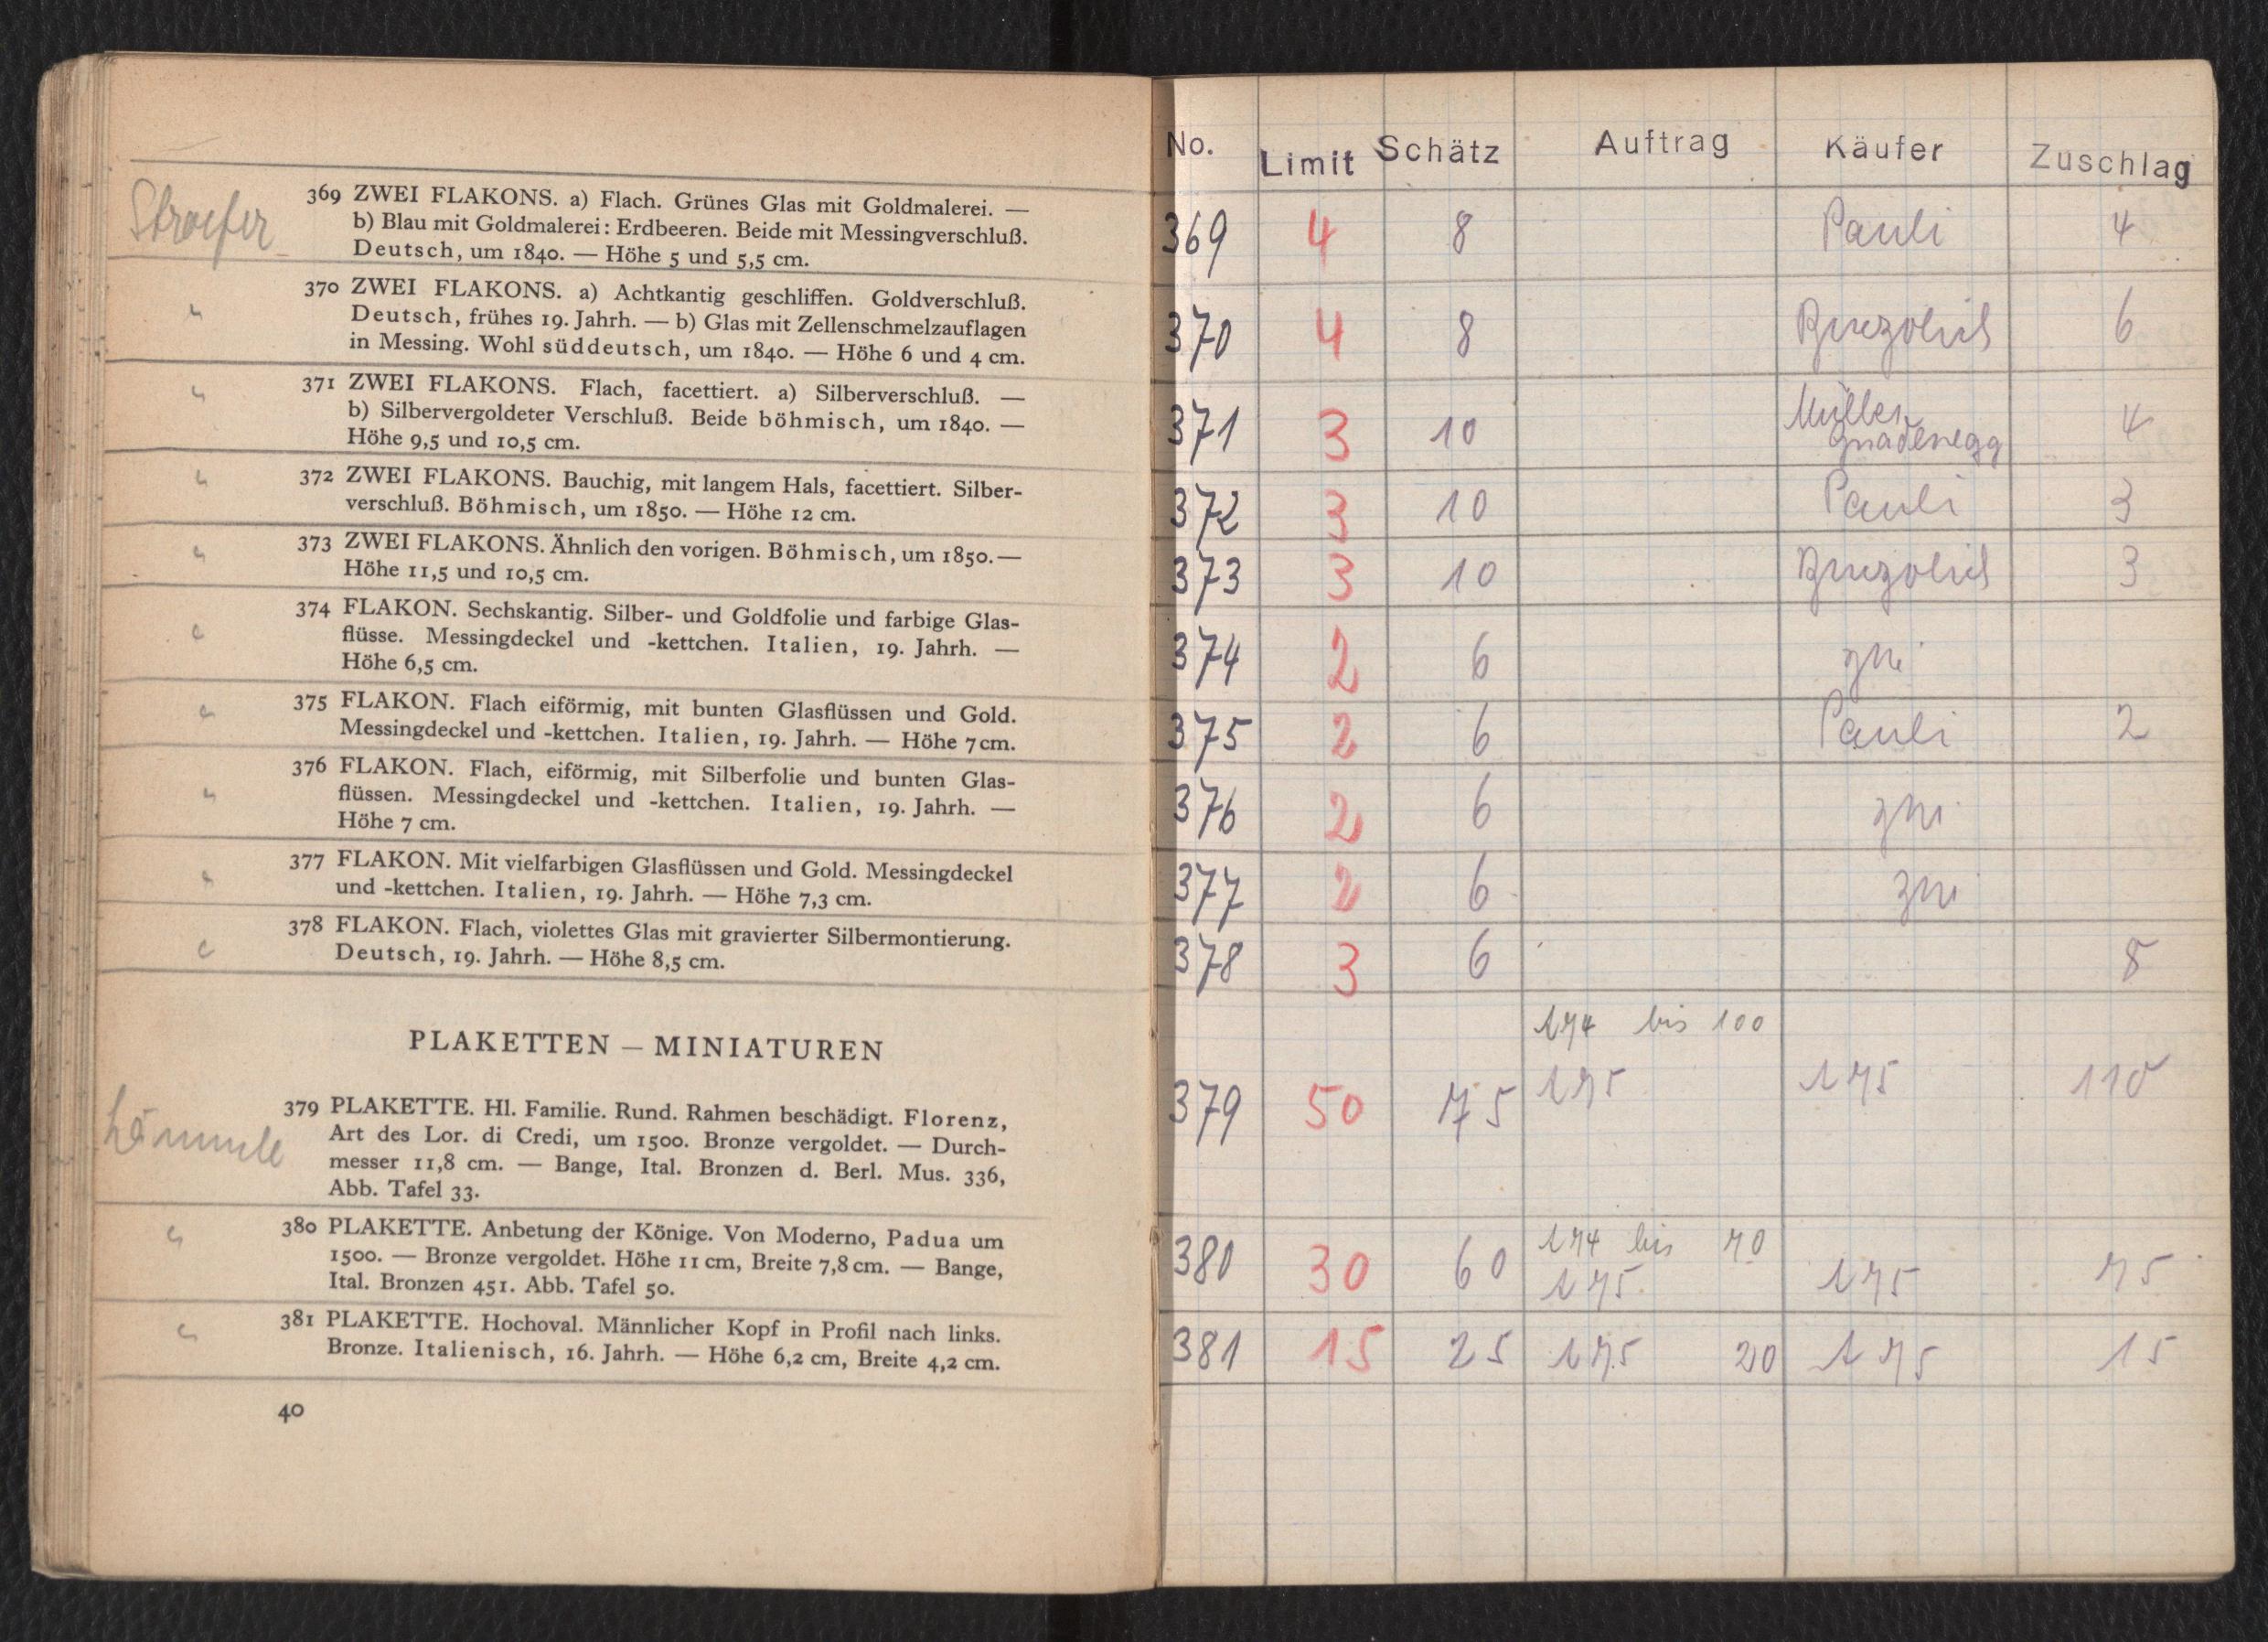 Stroefer
369 ZWEI FLAKONS. a) Flach. Grünes Glas mit Goldmalerei. —
b) Blau mit Goldmalerei: Erdbeeren. Beide mit Messingverschluß.
Deutsch, um 1840. — Höhe 5 und 5,5 cm.
370 ZWEI FLAKONS. a) Achtkantig geschliffen. Goldverschluß.
Deutsch, frühes 19. Jahrh. — b) Glas mit Zellenschmelzauflagen
in Messing. Wohl süddeutsch, um 1840. — Höhe 6 und 4 cm.
371 ZWEI FLAKONS. Flach, facettiert. a) Silberverschluß. —
b) Silbervergoldeter Verschluß. Beide böhmisch, um 1840. —
Höhe 9,5 und 10,5 cm.
372 ZWEI FLAKONS. Bauchig, mit langem Hals, facettiert. Silber-
verschluß. Böhmisch, um 1850. — Höhe 12 cm.
373 ZWEI FLAKONS. Ähnlich den vorigen. Böhmisch, um 1850. —
Höhe 11,5 und 10,5 cm.
374 FLAKON. Sechskantig. Silber- und Goldfolie und farbige Glas-
flüsse. Messingdeckel und -kettchen. Italien, 19. Jahrh. —
Höhe 6,5 cm.
375 FLAKON. Flach eiförmig, mit bunten Glasflüssen und Gold.
Messingdeckel und -kettchen. Italien, 19. Jahrh. — Höhe 7 cm.
376 FLAKON. Flach, eiförmig, mit Silberfolie und bunten Glas-
flüssen. Messingdeckel und -kettchen. Italien, 19. Jahrh. —
Höhe 7 cm.
377 FLAKON. Mit vielfarbigen Glasflüssen und Gold. Messingdeckel
und -kettchen. Italien, 19. Jahrh. — Höhe 7,3 cm.
378 FLAKON. Flach, violettes Glas mit gravierter Silbermontierung.
Deutsch, 19. Jahrh. — Höhe 8,5 cm.
PLAKETTEN — MINIATUREN
Lämmle
379 PLAKETTE. Hl. Familie. Rund. Rahmen beschädigt. Florenz,
Art des Lor. di Credi, um 1500. Bronze vergoldet. — Durch-
messer 11,8 cm. — Bange, Ital. Bronzen d. Berl. Mus. 336,
Abb. Tafel 33.
380 PLAKETTE. Anbetung der Könige. Von Moderno, Padua um
1500. — Bronze vergoldet. Höhe 11 cm, Breite 7,8 cm. — Bange,
Ital. Bronzen 451. Abb. Tafel 50.
381 PLAKETTE. Hochoval. Männlicher Kopf in Profil nach links.
Bronze. Italienisch, 16. Jahrh. — Höhe 6,2 cm, Breite 4,2 cm.
40
No. Limit Schätz Auftrag Käufer Zuschlag
369 4 8 Pauli 4
370 4 8 6
371 3 10 Müller 4
Gnadenegg
372 3 10 Pauli 3
373 3 10 3
374 2 6
375 2 6 Pauli 2
376 2 6
377 2 6
378 3 6 8
174 bis 100
379 50 75 175 175 110
174 bis 70
380 30 60 175 175 75
381 15 25 175 20 175 15